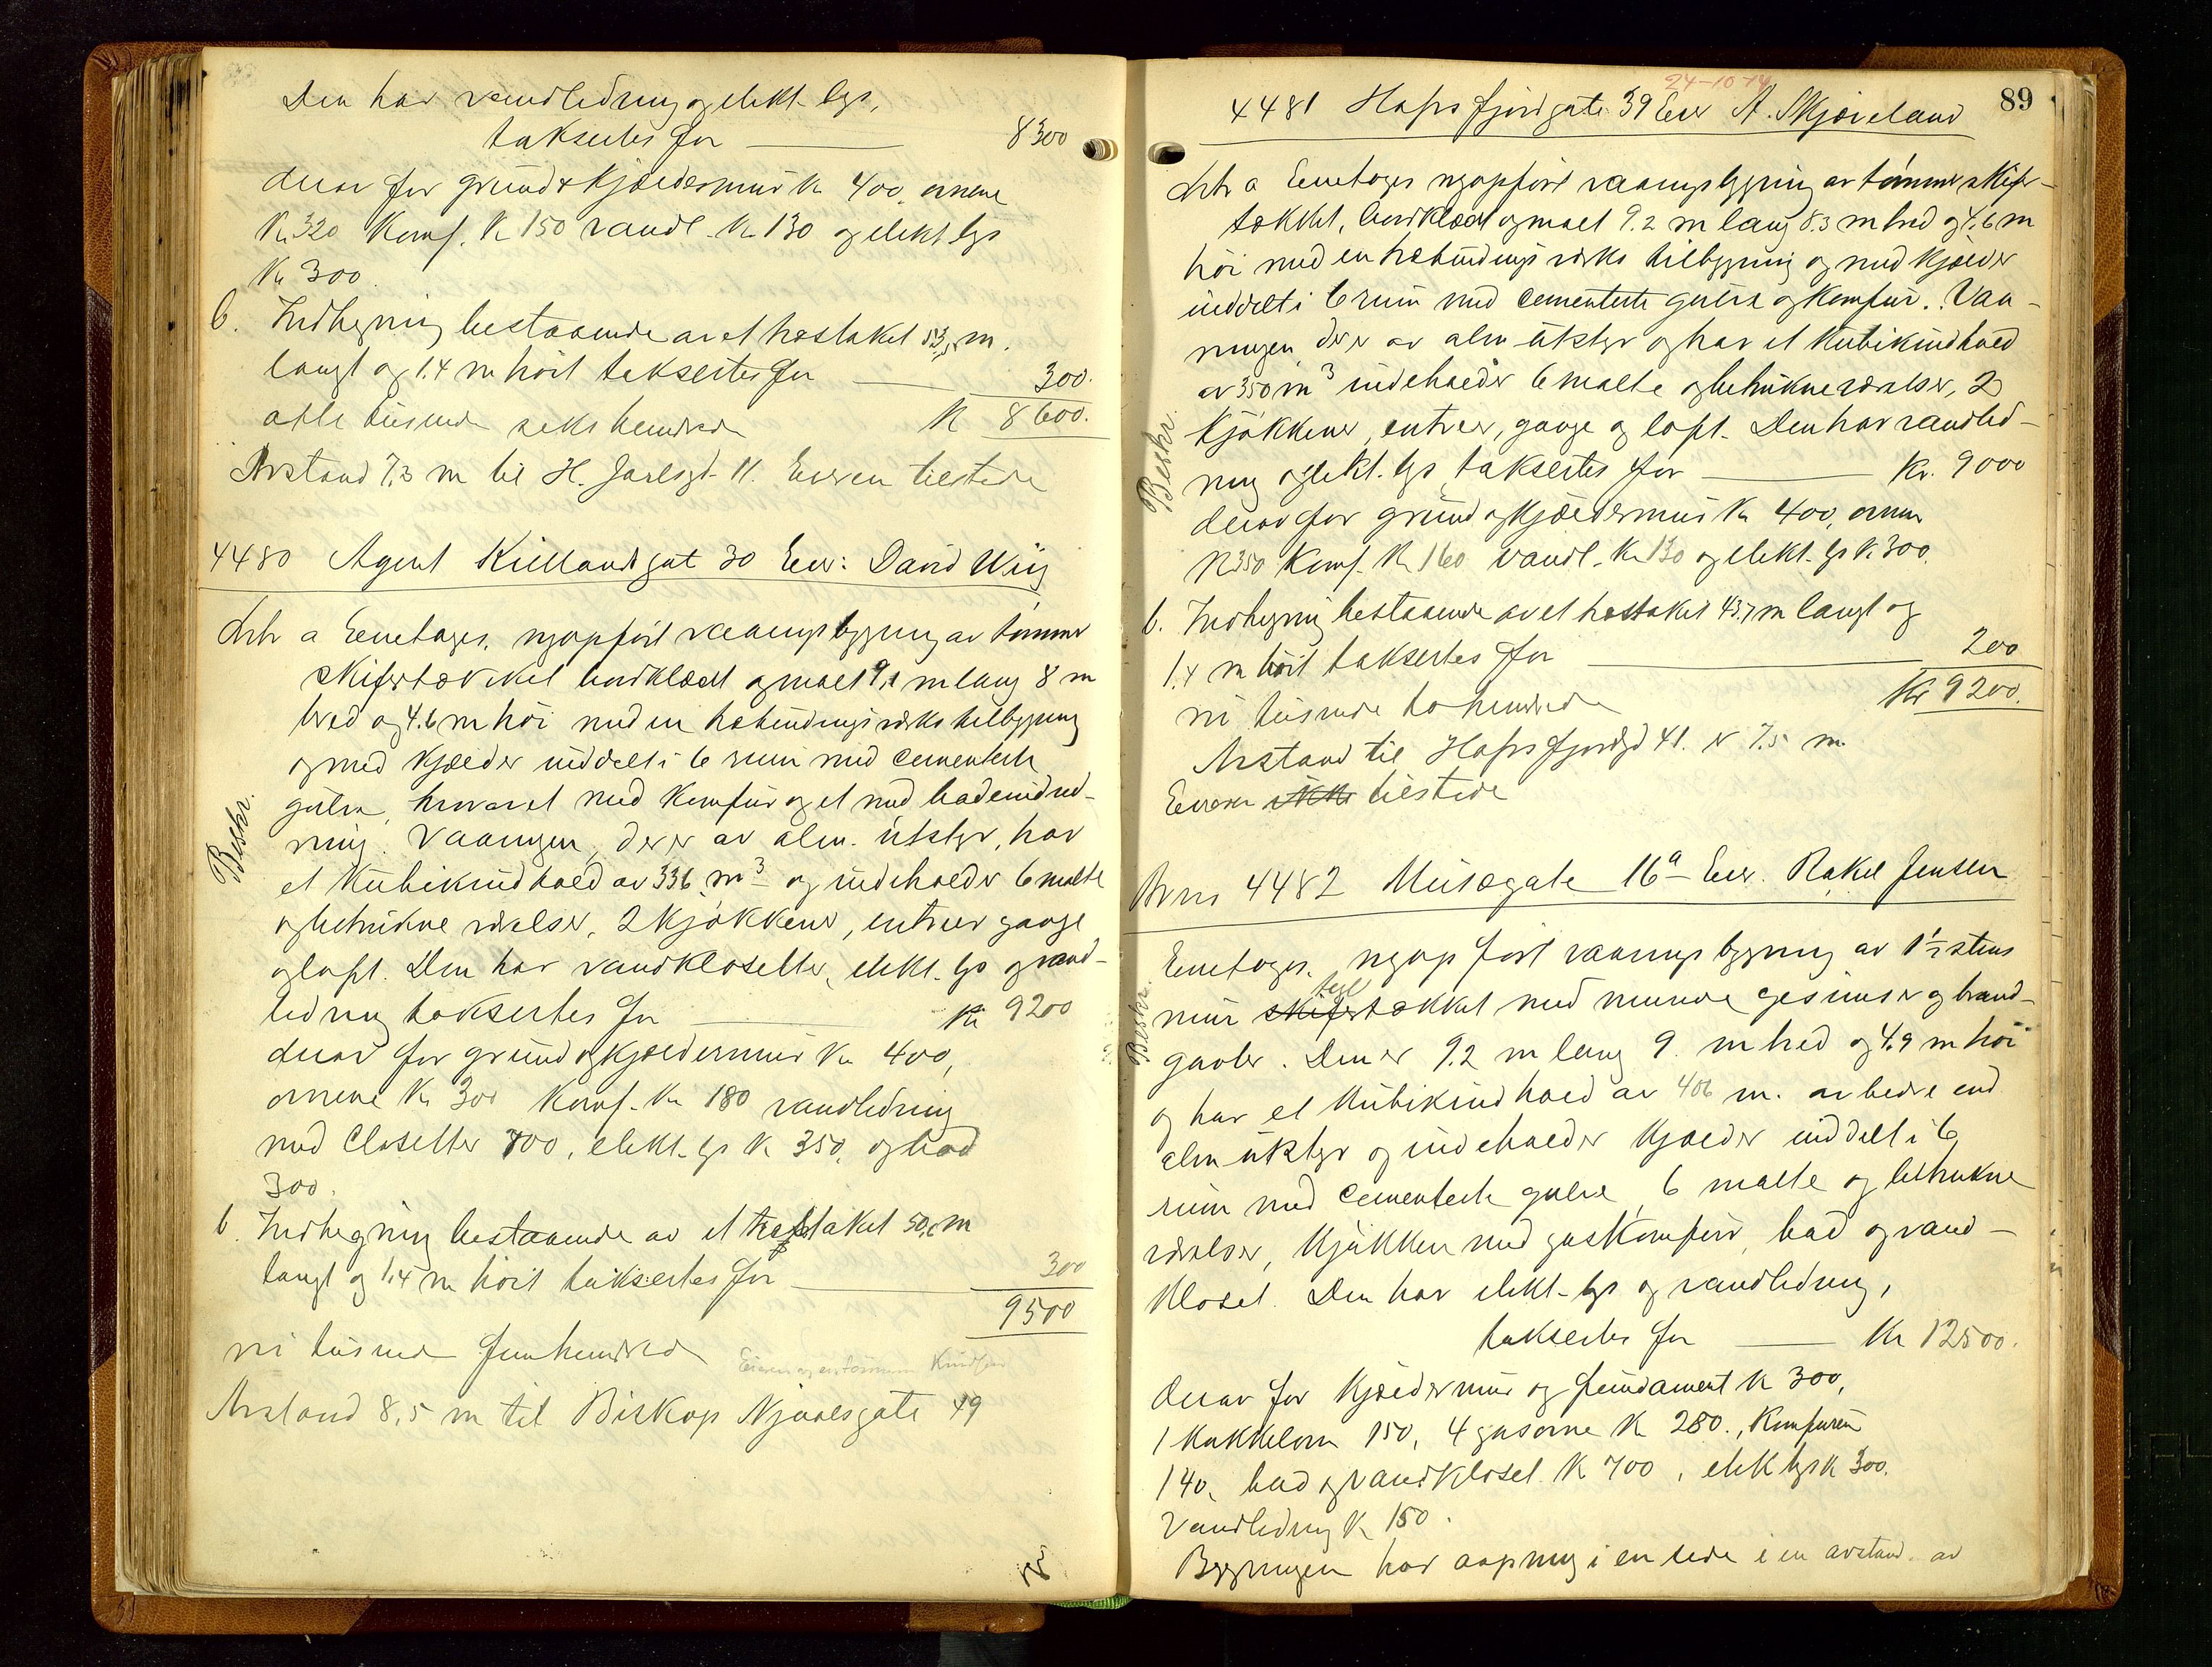 Den har vandledning og elekt. lys,
taksertes for 8300
derav for grund & kjældermur Kr 400, ovnene
Kr 320 Komf. Kr 150 vandl. Kr 130 og elekt lys
Kr 300.
b. Indhegning bestaaende av et træstaket 53,5 m.
langt og 1.4 m høit taksertes for 300.
otte tusinde seks hundrede Kr 8600.
Avstand 7,3 m til H. Jarlsgt. 11. Eieren tilstede
4480 Agent Kiellandsgat 30 Eier: David Wiig
Litr a Eenetages, nyopført vaaningsbygning av tømmer
skifertækket bordklædt og malt 9,1 m lang 8 m
bred og 4.6 m høi med en træbindingsværks tilbygning
og med kjælder inddelt i 6 rum med cementerte
gulve, hvorav et med komfur og et med badeindred-
ning. Vaaningen, der er av alm. utstyr, har
Beskr.
et Kubikindhold av 336 m³ og indeholder 6 malte
og betrukne værelser, 2 kjøkkener, entreer gange
og loft. Den har vandklosetter, elekt. lys og vand-
ledning taksertes for Kr 9200
derav for grund og kjældermur Kr 400,
ovnene Kr 300 Komf. Kr 180 vandledning
med Closetter 700, elekt. lys Kr 350, og bad
300.
b. Indhegning bestaaende av et træstaket 50,6 m
langt og 1,4 m høit taksertes for 300
9500
ni tusinde femhundrede Eieren
Avstand 8,5 m til Biskop Njaalsgate 49
24-10-14
89
4481 Hafrsfjordgate 39 Eier A. Skjæveland
Litr a Eenetages nyopført vaaningsbygning av tømmer skifer-
tækket, bordklædt og malt 9.2 m lang 8.3 m bred og 4.6 m
høi med en træbindingsværks tilbygning og med kjælder
inddelt i 6 rum med cementerte gulve og komfur. Vaa-
ningen der er av alm utstyr og har et Kubikindhold
av 350 m³ indeholder 6 malte og betrukne værelser, 2
Kjøkkener, entreer, gange og loft. Den har vandled-
Beskr.
ning og elekt. lys taksertes for Kr. 9000
derav for grund og kjældermur Kr 400, ovnene
Kr 350 Komf. Kr 160 vandl. Kr 130 og elekt. lys Kr 300.
b. Indhegning bestaaende av et træstaket 43.7 m langt og
1.4 m høit taksertes for 200
ni tusinde to hundrede Kr 9200.
Avstand til Hafrsfjordgd 41. er 7.5 m.
Eieren ikke tilstede
Brnr 4482 Musægate 16a Eier. Rakel Jensen
Eenetages, nyopført vaaningsbygning av 1½ stens
tegl
mur skifertækket med murede gesimser og brand-
Beskr.
gavler. Den er 9.2 m lang 9. m bred og 4.9 m høi
og har et Kubikindhold av 406 m. av bedre end
alm utstyr og indeholder kjælder inddelt i 6
rum med cementerte gulve, 6 malte og betrukne
værelser, Kjøkken med gaskomfur, bad og vand-
kloset. Den har elekt. lys og vandledning,
taksertes for Kr 12500.
derav for kjældermur og fundament Kr 300,
1 kakkelovn 150, 4 gasovne Kr 280., Komfuren
140, bad og vandkloset Kr 700, elek lys Kr 300.
Vandledning Kr 150.
Bygningen har aapning i en side i en avstand av